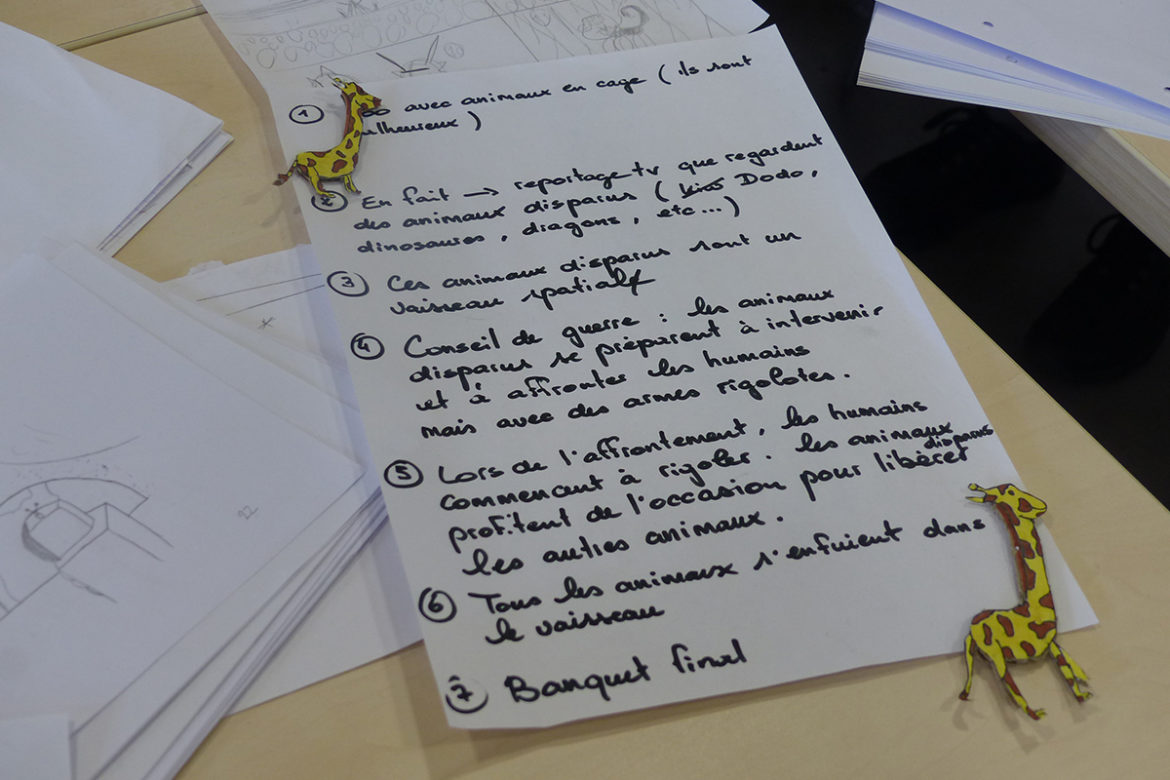 ① oo avec animaux en cage ( ils sont
lheureux )
② En fait → reportage tv que regardent
des animaux disparus ( Dodo,
dinosaures, dragons, etc...)
③ Ces animaux disparus sont un
vaisseau spatial
④ Conseil de guerre : les animaux
disparus se préparent à intervenir
et à affronter les humains
mais avec des armes rigolotes.
⑤ Lors de l'affrontement, les humains
commencent à rigoler. les animaux disparus
profitent de l'occasion pour libérer
les autres animaux.
⑥ Tous les animaux s'enfuient dans
le vaisseau
⑦ Banquet final